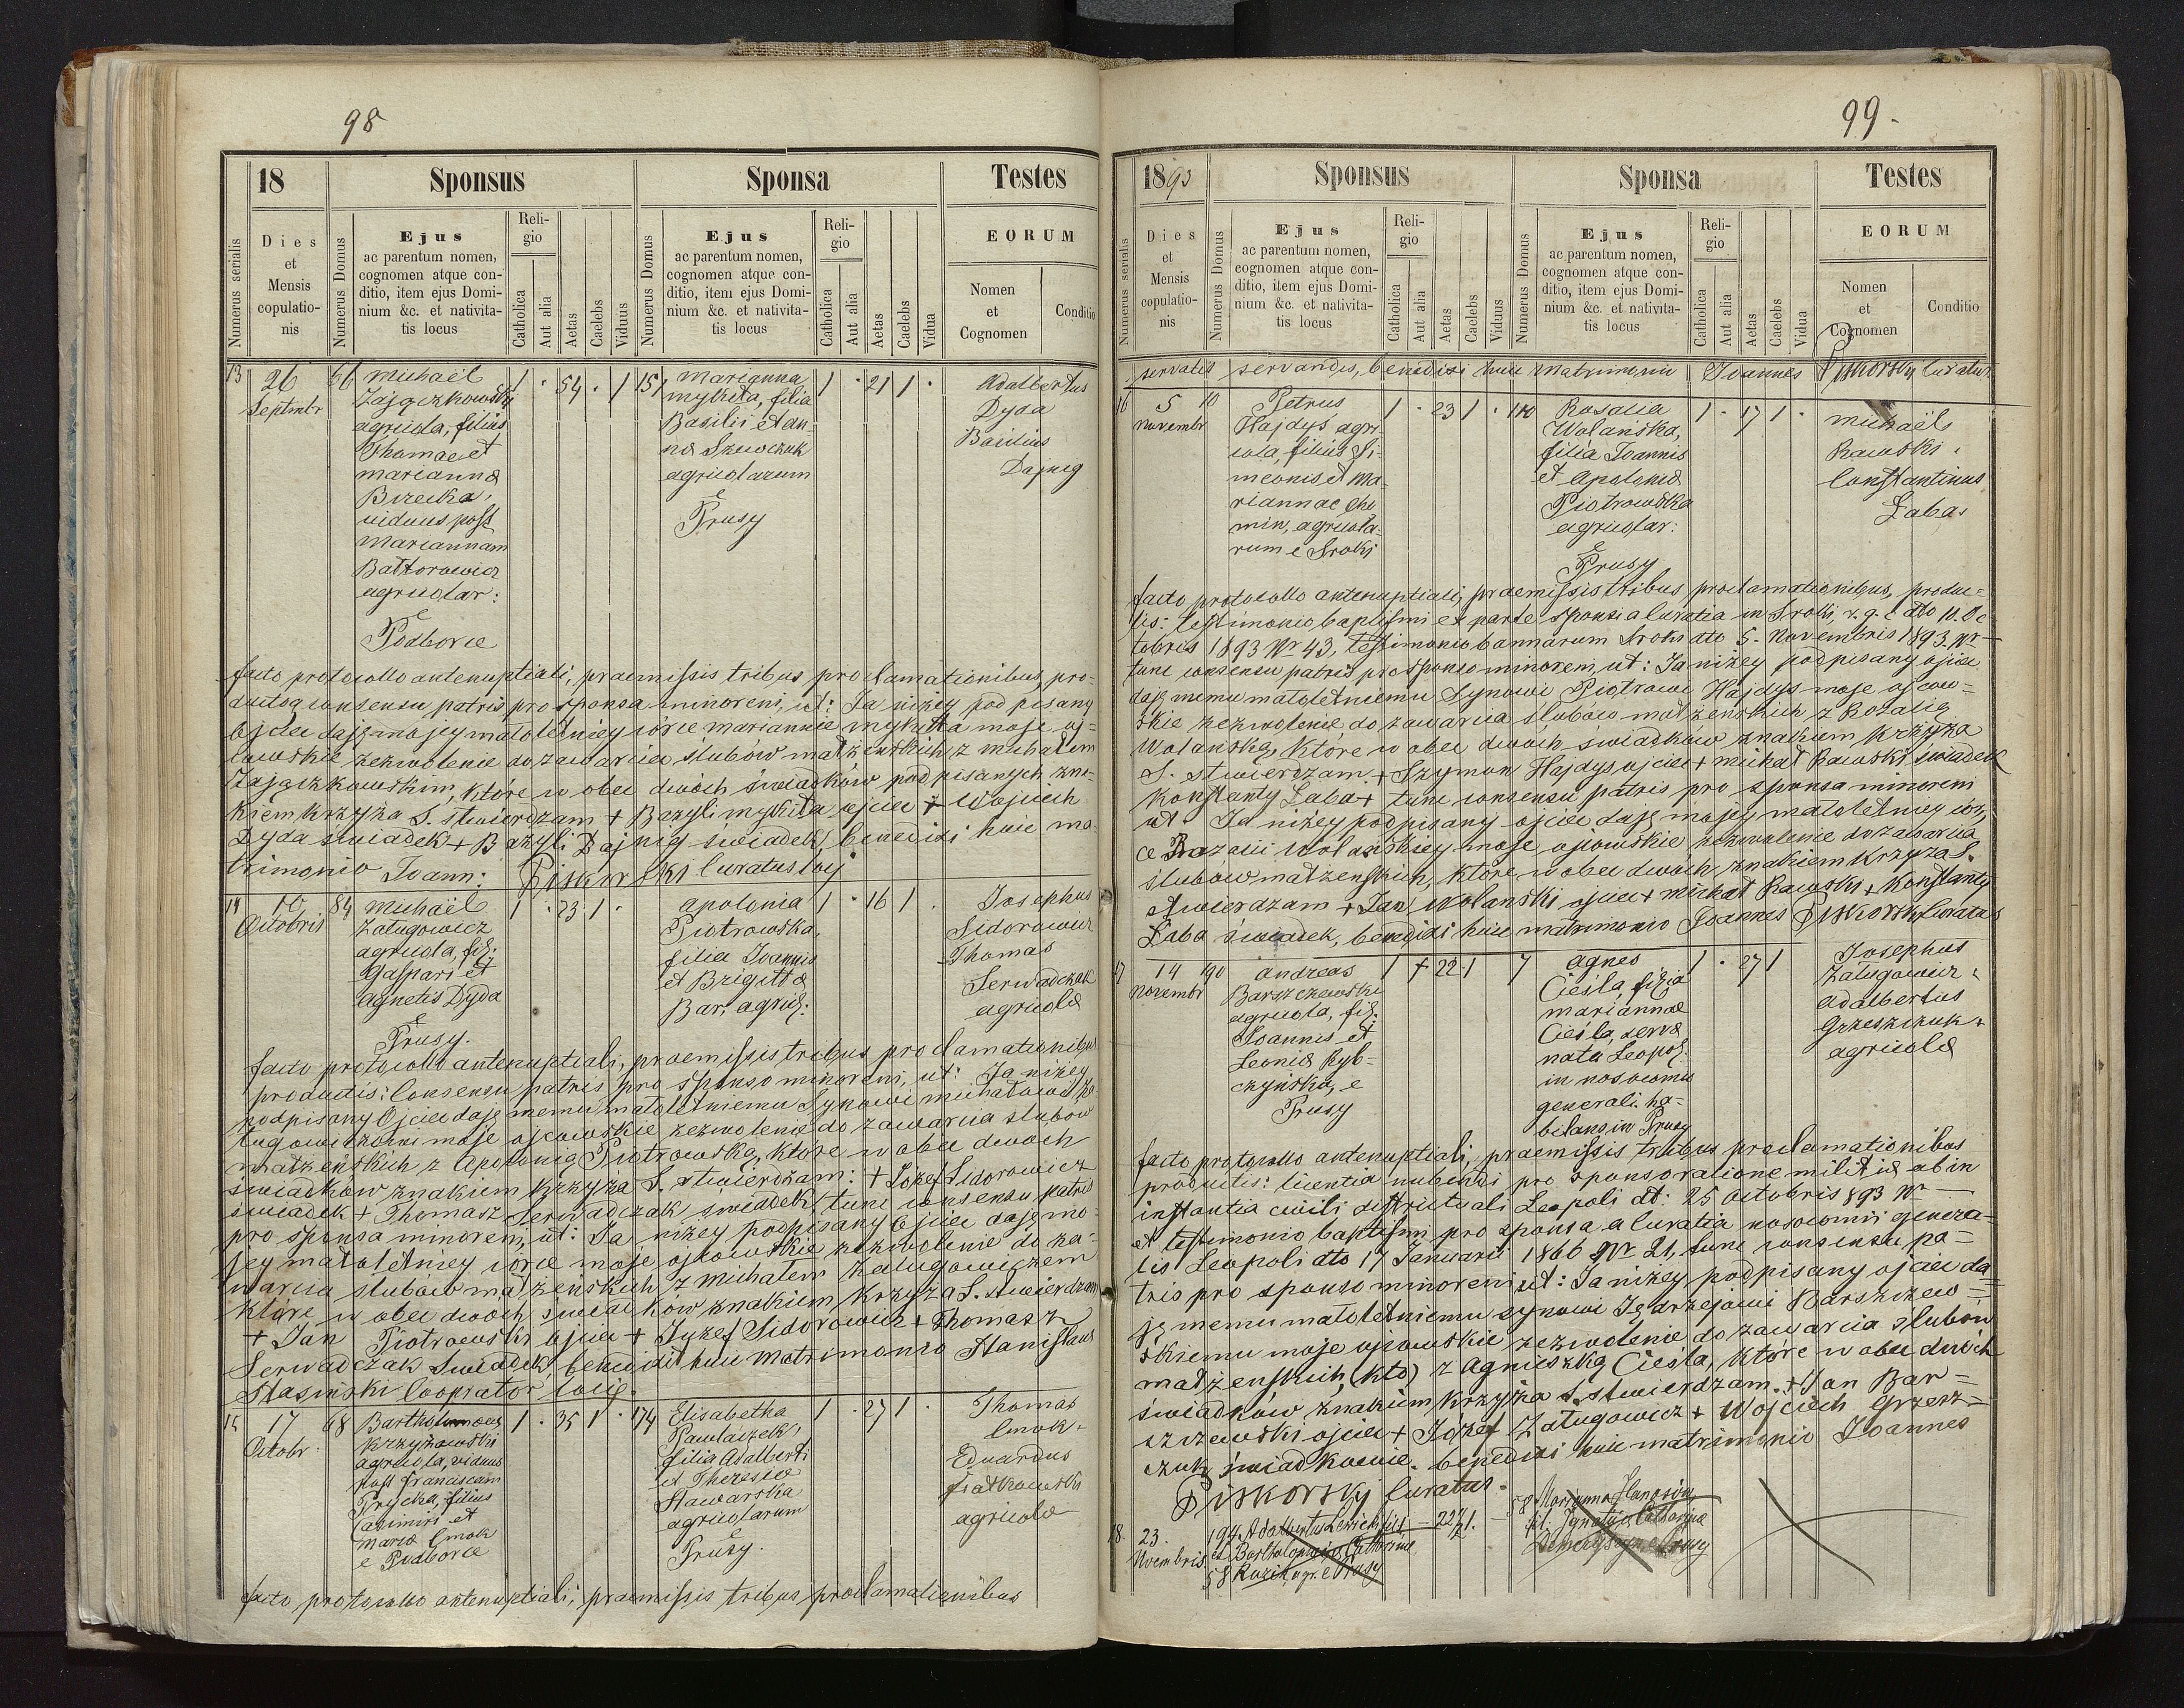 98
18
Sponsus
Sponsa
Testes
Numerus serialis
Dies et Mensis copulatio-nis
Numerus Domus
Ejus
ac parentum nomen,
cognomen atque con-
ditio, item ejus Domi-
nium &c. et nativita-
tis locus
Reli-
gio
Catholica
Aut alia
Aetas
Caelebs
Viduus
Numerus Domus
Ejus
ac parentum nomen,
cognomen atque con-
ditio, item ejus Domi-
nium &c. et nativita-
tis locus
Reli-
gio
Catholica
Aut alia
Aetas
Caelebs
Vidua
EORUM
Nomen
et
Cognomen
Conditio
13
26
Septembr
66
Michaël
Zajączkowski
agricola, filius
Thomae et
Marianna
Birecka,
viduus post
Mariannam
Battorowicz
agricolar:
e
Podborce
1 . 54 . 1
151
Marianna
Mykita, filia
Basilii et An-
na Szewczuk
agricolarum
e
Prusy
1 . 21 1 .
Adalbertus
Dyda
Basilius
Dajnig
facto protocollo antenuptiali, praemissis tribus proclamationibus, pro-
ductoq consensu patris pro sponsa minoreni, ut: Ja niżey podpisany
Ojciec daję mojey małoletniey córce Mariannie Mykitta moje oj-
cowskie zezwolenie do zawarcia ślubów małżeńskich z Michałem
Zajączkowskim, które w obec dwóch świadków podpisanych zna-
kiem krzyża S. stwierdzam + Bazyli Mykita ojciec + Wojciech
Dyda świadek + Bazyli Dajnig świadek, benedixi huic ma-
trimonio Joann: Piskorski Curatus loci
14
10
Octobris
84
Michaël
Załugowicz
agricola, fil:
Gaspari et
Agnetis Dyda
e
Prusy.
1 . 23 1 .
Apolonia
Piotrowska,
filia Joannis
et Brigitta
Bar, agricol:
1 . 16 1 .
Josephus
Sidorowicz
Thomas
Serwadczak
agricola
facto protocollo antenuptiali, praemissis tribus proclamationibus
productis: Consensu patris pro sponso minoreni, ut: Ja niżey
podpisany Ojciec daję memu małoletniemu Synowi Michałowi Za-
ługowiczowi moje ojcowskie zezwolenie do zawarcia ślubów
małżeńskich z Apolonią Piotrowską, które w obec dwóch
świadków znakiem krzyża S. stwierdzam: + Józef Sidorowicz
świadek + Thomasz Serwadczak świadek, tum consensu patris
pro sponsa minoren, ut: Ja niżey podpisany Ojciec daję mo-
jey małoletniey córce moje ojcowskie zezwolenie do za-
warcia ślubów małżeńskich z Michałem Załugowiczem
które w obec dwóch świadków znakiem krzyża S. stwierdzam
+ Jan Piotrowski ojciec + Józef Sidorowicz + Thomasz
Serwadczak świadek, benedixit huic matrimonio Stanislaus
Stasiński Cooprator loci.
15
17
Octobr.
68
Bartholomaeus
Krzyżowski
agricola, viduus
post Franciscam
Prycka, filius
Casimiri et
Maria Cmok
e Podborce
1 . 35 1 .
174
Elisabetha
Pawłaczek,
filia Adalberti
et Theresiae
Stawarska
agricolarum
e
Prusy.
1 . 27 1 .
Thomas
Cmok
Eduardus
Fiałkowski
agricola
facto protocollo antenuptiali, praemissis tribus proclamationibus
99.
1893
Sponsus
Sponsa
Testes
Numerus serialis
Dies et Mensis copulatio-nis
Numerus Domus
Ejus
ac parentum nomen,
cognomen atque con-
ditio, item ejus Domi-
nium &c. et nativita-
tis locus
Reli-
gio
Catholica
Aut alia
Aetas
Caelebs
Viduus
Numerus Domus
Ejus
ac parentum nomen,
cognomen atque con-
ditio, item ejus Domi-
nium &c. et nativita-
tis locus
Reli-
gio
Catholica
Aut alia
Aetas
Caelebs
Vidua
EORUM
Nomen
et
Cognomen
Conditio
servatis servandis, benedixi huic matrimonii Joannes Piskorski Curatus
16
5
Novembr
10
Petrus
Hajdys agri-
cola, filius Si-
meonis et Ma-
riannae Cho
min, agricola-
rum e Sroki
1 . 23 1 .
110
Rosalia
Wolańska,
filia Joannis
et Apolonia
Piotrowska
agricolar:
e
Prusy
1 . 17 1 .
Michaël
Rawski
Constantinus
Łaba
facto protocollo antenuptiali, praemissis tribus proclamationibus, produc-
tis: testimonio baptismi ex parte sponsi a Curatia in Sroki r. g. c dto 10. Oc-
tobris 1893 Nr 43, testimonio bannarum Sroki dto 5. Novembris 1893 Nr —
tum consensu patris pro sponso minoren, ut: Ja niżey podpisany ojciec
daję memu małoletniemu Synowi Piotrowi Hajdys moje ojcow-
skie zezwolenie do zawarcia ślubów małżeńskich z Rozalią
Wolańską, które w obec dwóch świadków znakiem krzyża
S. stwierdzam. + Szymon Hajdys ojciec + Michał Rawski świadek
Konstanty Łaba + tum consensu patris pro sponsa minoreni
ut Ja niżey podpisany ojciec daję mojej małoletniey cór-
ce Rozalii Wolańskiey moje ojcowskie zezwolenie do zawarcia
ślubów małżeńskich, które w obec dwóch znakiem krzyża S.
stwierdzam + Jan Wolański ojciec + Michał Rawski + Konstanty
Łaba świadek, benedixi huic matrimonio Joannes Piskorski Curatus
17
14
Novembr
190
Andreas
Barszczewski
agricola, fil:
Joannis et
Leonia Ryb-
czyńska, e
Prusy
1 + 22 1
7
Agnes
Cieśla, filia
Mariannae
Cieśla, serva
nata Leopol:
in nosocomio
generali ha-
bitans in Prusy
1 . 27 1
Josephus
Załugowicz
Adalbertus
Grzeszczuk +
agricola
facto protocollo antenuptiali, praemissis tribus proclamationibus
productis: licentia nubendi pro sponso ratione militia ab in
instantia civili districtuali Leopoli dt: 25 Octobris 893 Nr —
et testimonio baptismi pro sponsa a Curatia nosocomii genera-
lis Leopoli dto 17 Januarii 1866 Nr 21, tum consensu pa-
tris pro sponso minoreni ut: Ja niżey podpisany ojciec da-
ję memu małoletniemu synowi Jędrzejowi Barszczew-
skiemu moje ojcowskie zezwolenie do zawarcia ślubów
małżeńskich (kto) z Agnieszką Cieśla, które w obec dwóch
świadków znakiem krzyża S. stwierdzam. + Jan Bar-
szczewski ojciec + Józef Załugowicz + Wojciech Grzesz-
czuk świadkowie. benedixi huic matrimonio Joannes
Piskorski Curatus.
18.
23.
Novembris
194.
58
et Bartholomaei
e Prusy
58 Marianna
fil: Ignatii et Catharina
e Prusy